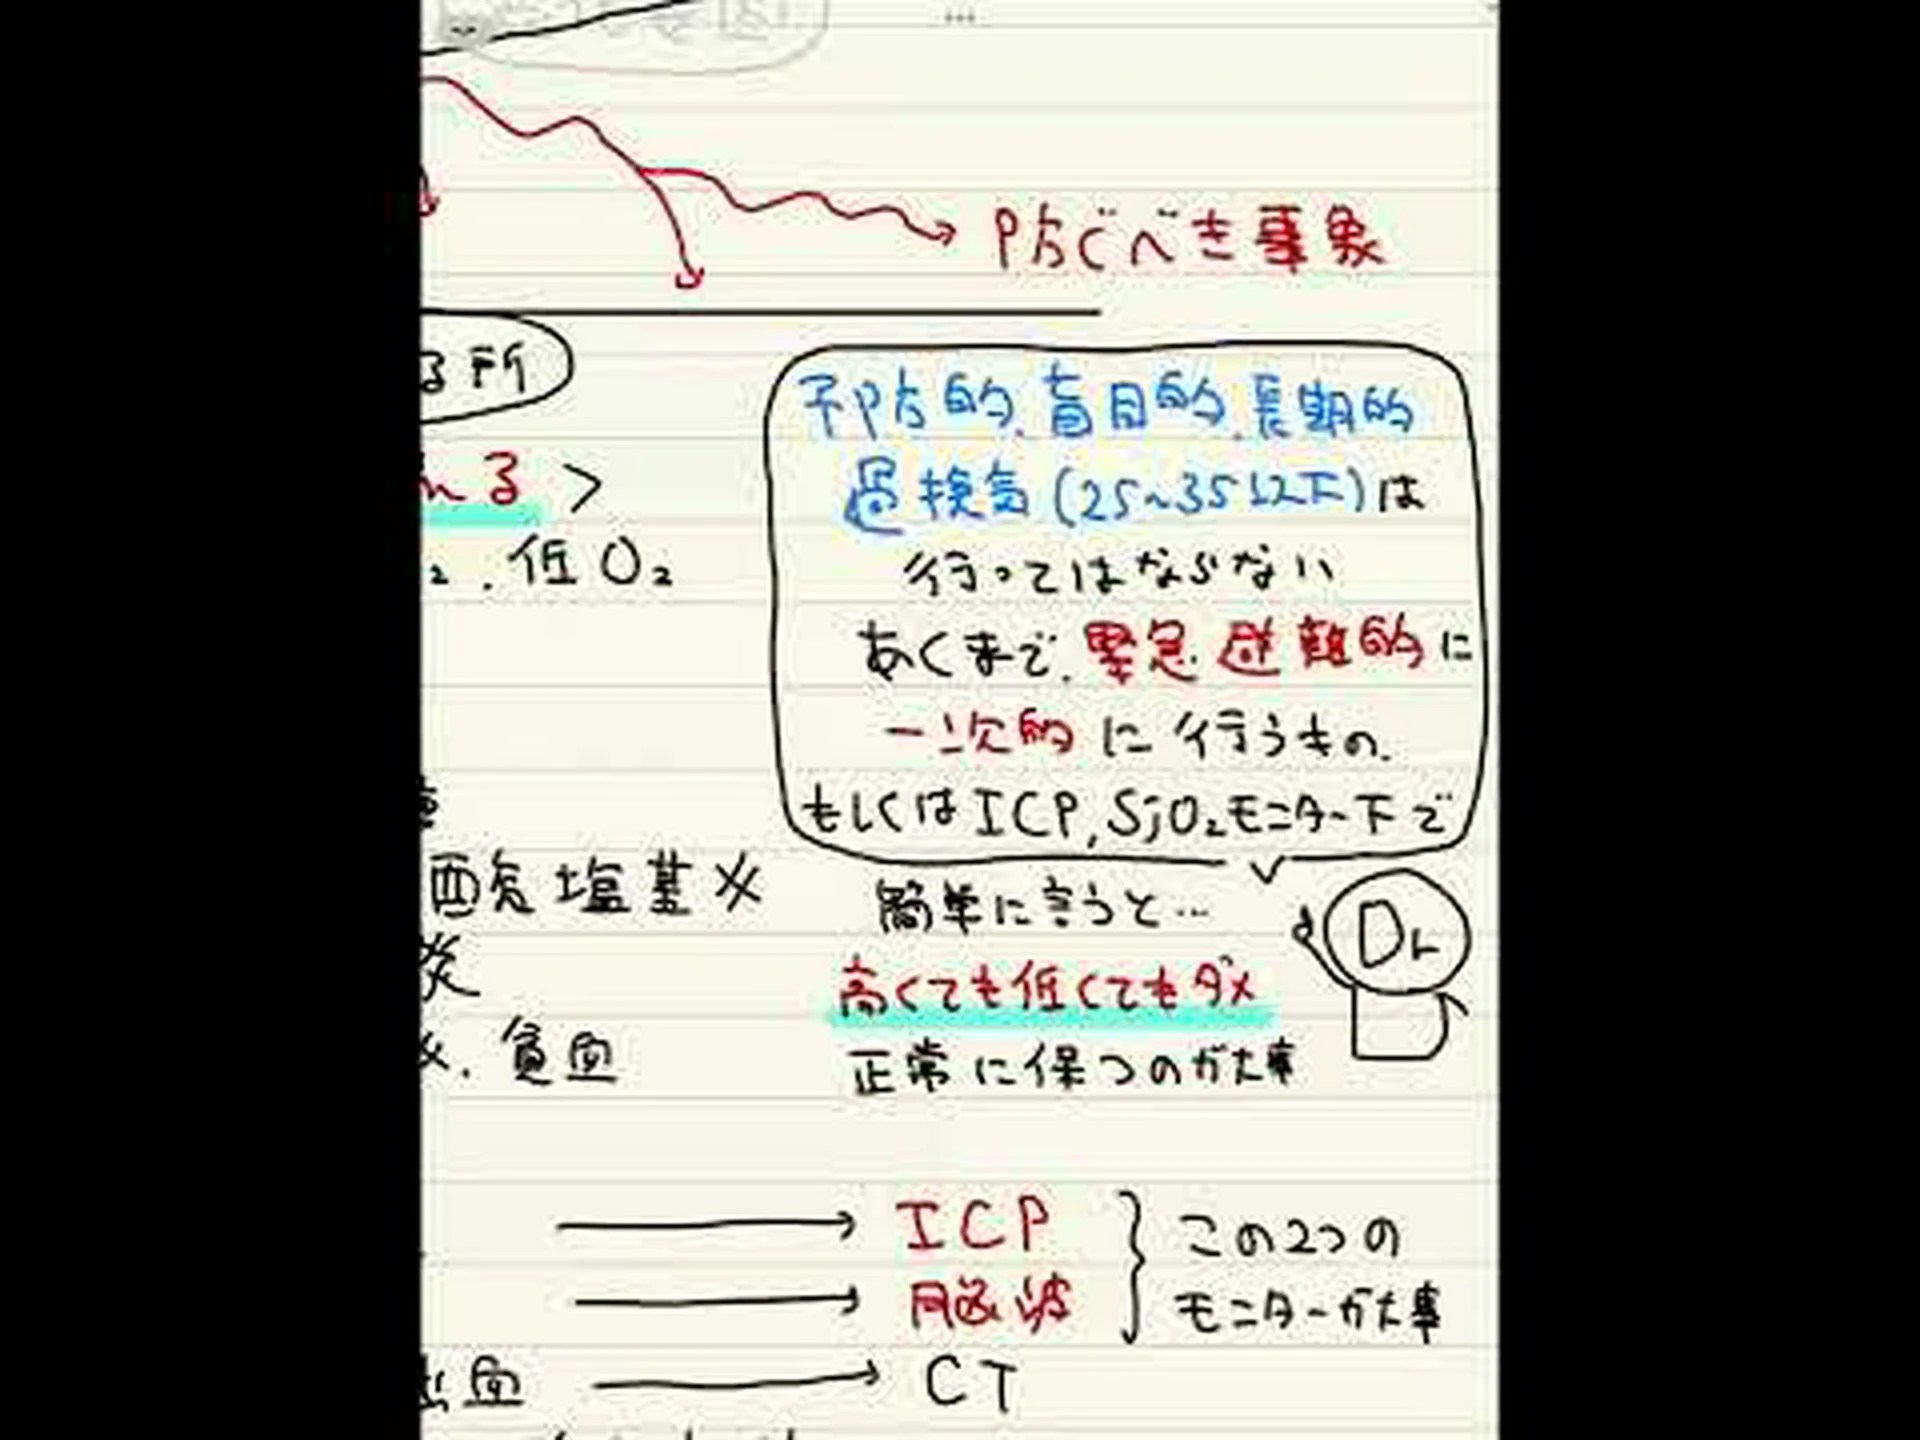 防ぐべき事象
る所
予防的、盲目的、長期的
過換気(25~35以下)は
る >
行ってはならない
2、低O2
あくまで、緊急避難的に
一次的に行うもの。
もしくはICP, SjO2モニター下で
酸塩基※
簡単に言うと…
Dr
炎
高くても低くてもダメ
貧血
正常に保つのが大事
→ ICP
この2つの
→ 脳波
モニターが大事
出血 → CT